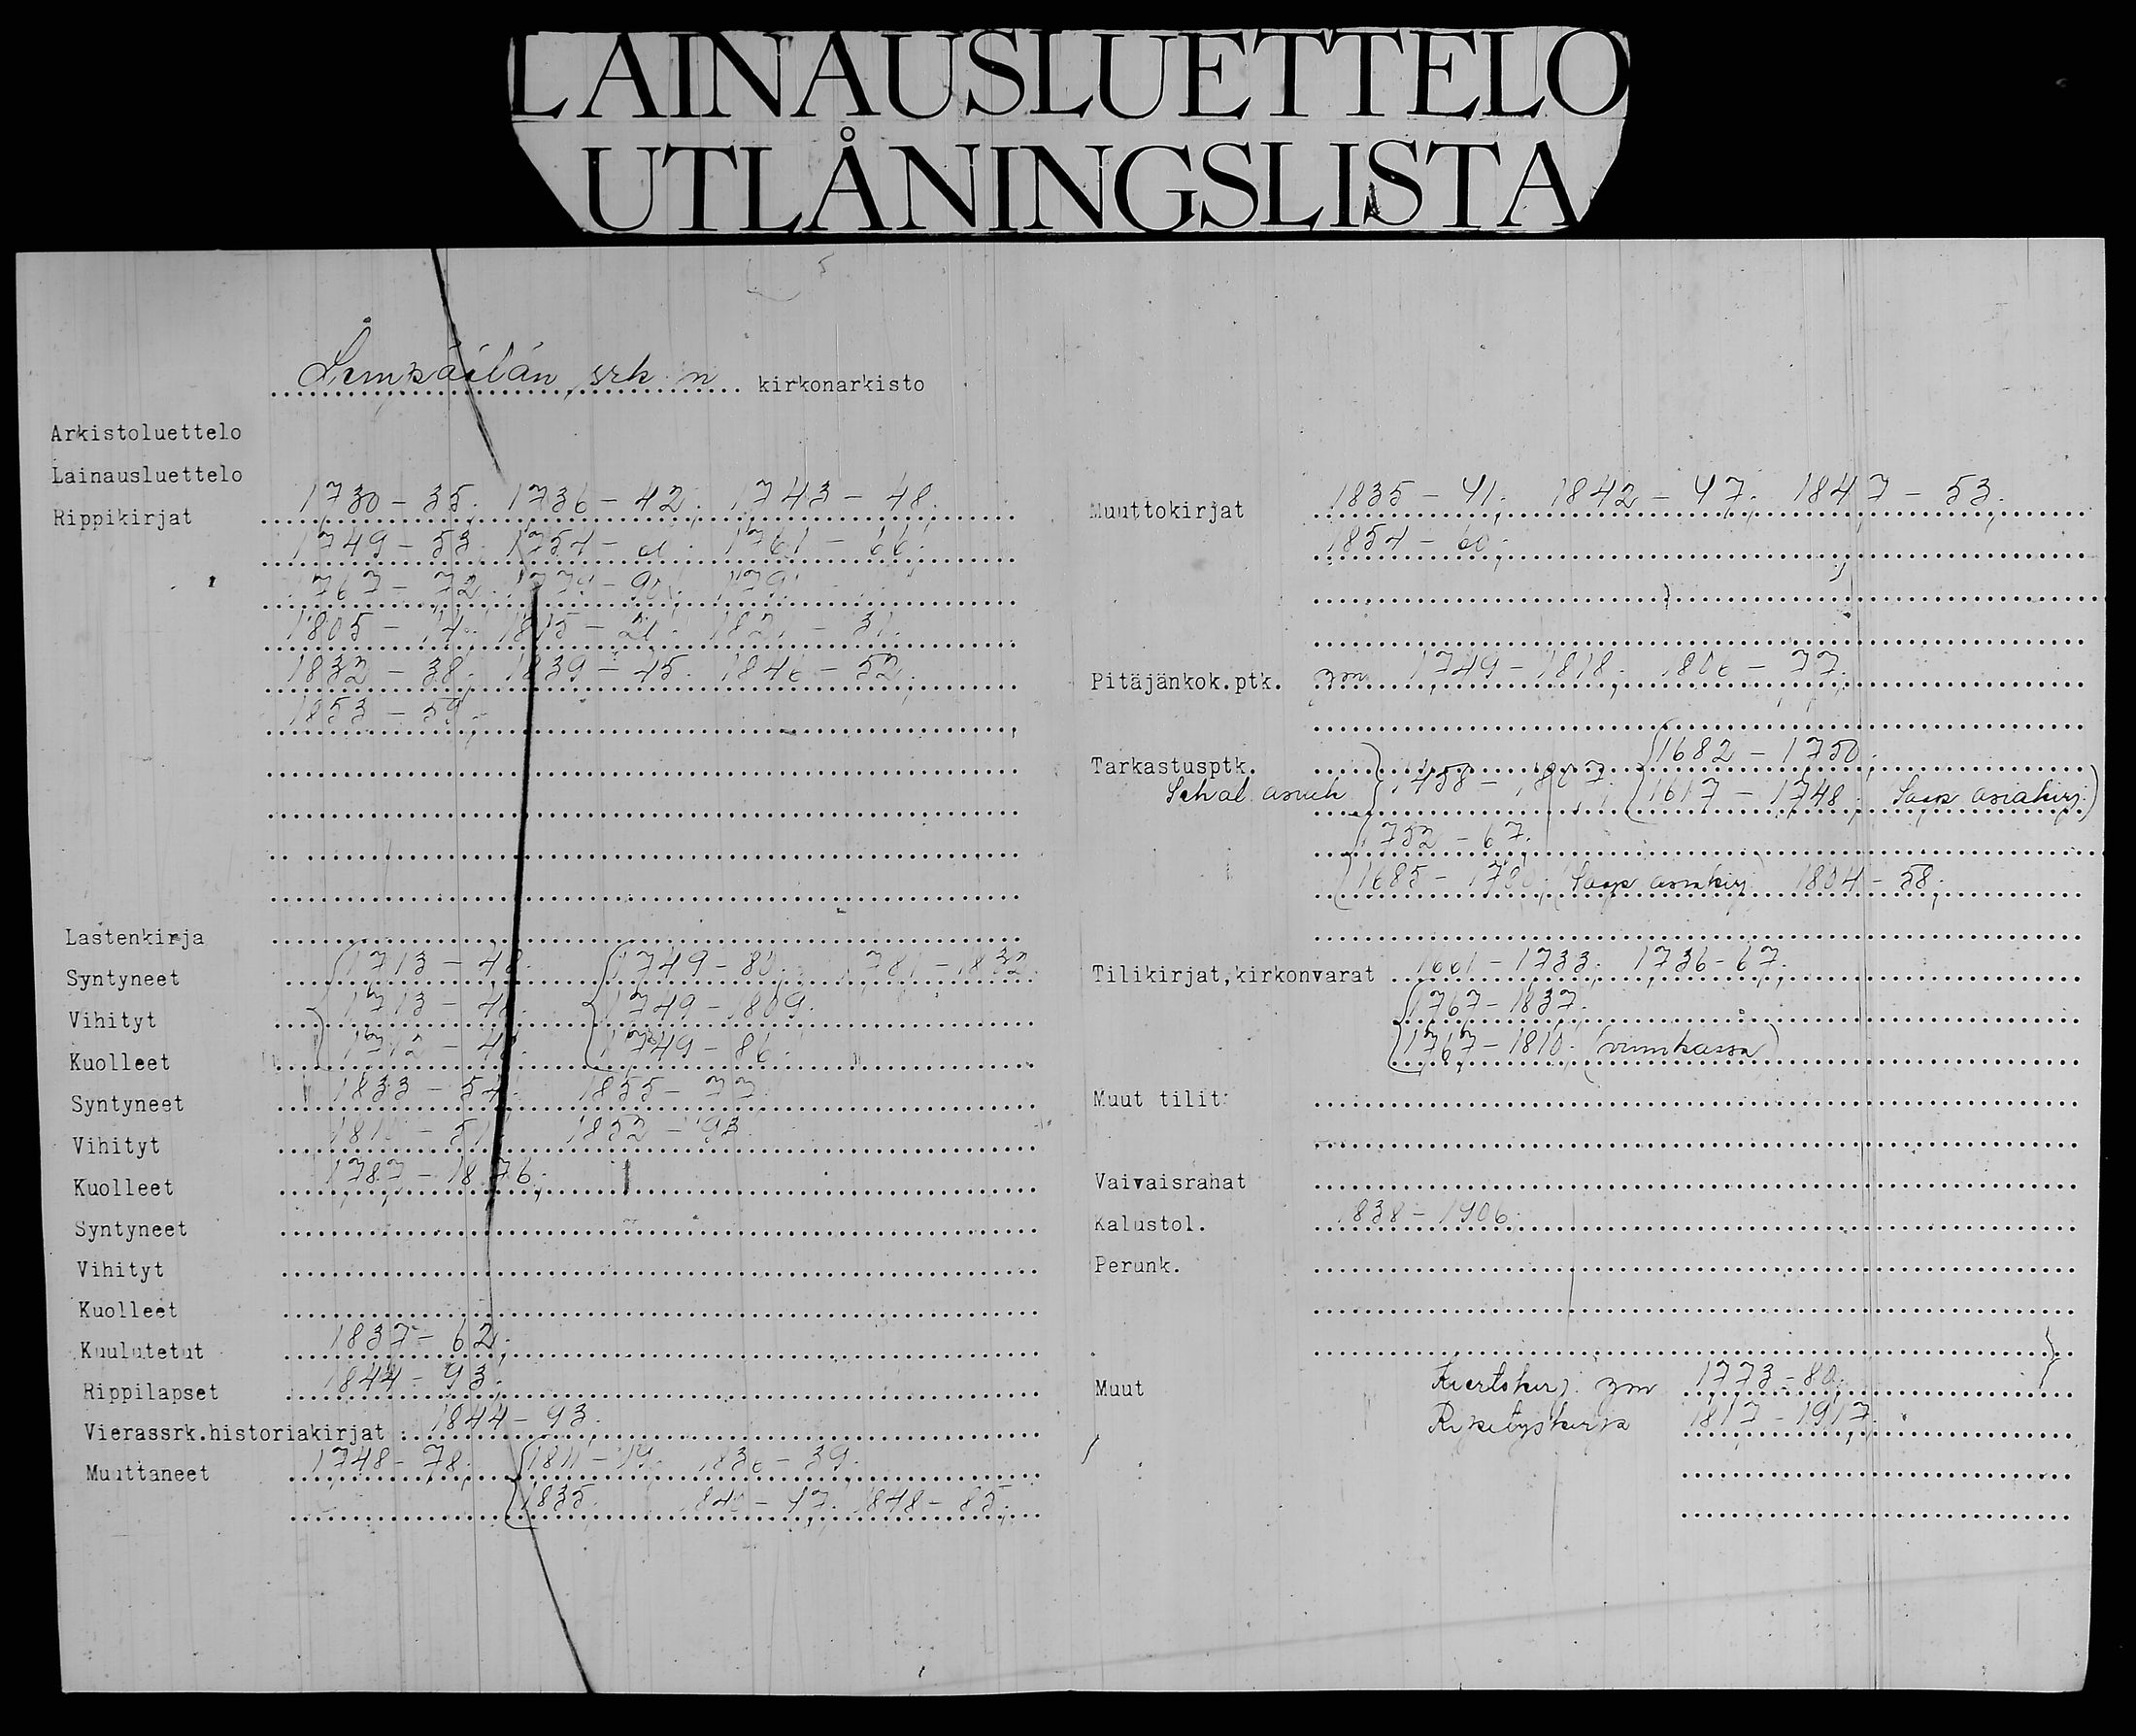 LAINAUSLUETTELO
UTLÅNINGSLISTA
Lempäälän srk n kirkonarkisto
Arkistoluettelo
Lainausluettelo
Rippikirjat 1730-35. 1736-42. 1743-48.
1749-53. 1754- 1761-66.
1767-72. 90.
1805- 1815-21. 31.
1832-38. 1839-45. 1846-52.
1853-59.
Lastenkirja
Syntyneet 1713-48. 1749-80. 1781-1832.
Vihityt 1713-48. 1749-1809.
Kuolleet 1712-48. 1749-86.
Syntyneet 1833-54. 1855-77.
Vihityt 1852-93.
Kuolleet 1787-1876.
Syntyneet
Vihityt
Kuolleet
Kuulutetut 1837-62.
Rippilapset 1844-93.
Vierassrk.historiakirjat : 1844-93.
Muuttaneet 1748-78. 1811-19. 1836-39.
1835. 1840-47. 1848-85.
Muuttokirjat 1835-41. 1842-47. 1847-53.
1854-60.
Pitäjänkok.ptk. ym 1749-1818. 1806-77.
Tarkastusptk. 1682-1750.
1617-1748. Saap asiakirj.)
1752-67.
1685- (Saap asiakirj) 1804-58.
Tilikirjat,kirkonvarat 1661-1733. 1736-67.
1767-1837.
1767-1810. (viinikassa)
Muut tilit
Vaivaisrahat
Kalustol. 1838-1906.
Perunk.
Muut Kiertokirj. ym 1773-80.
1817-1917.